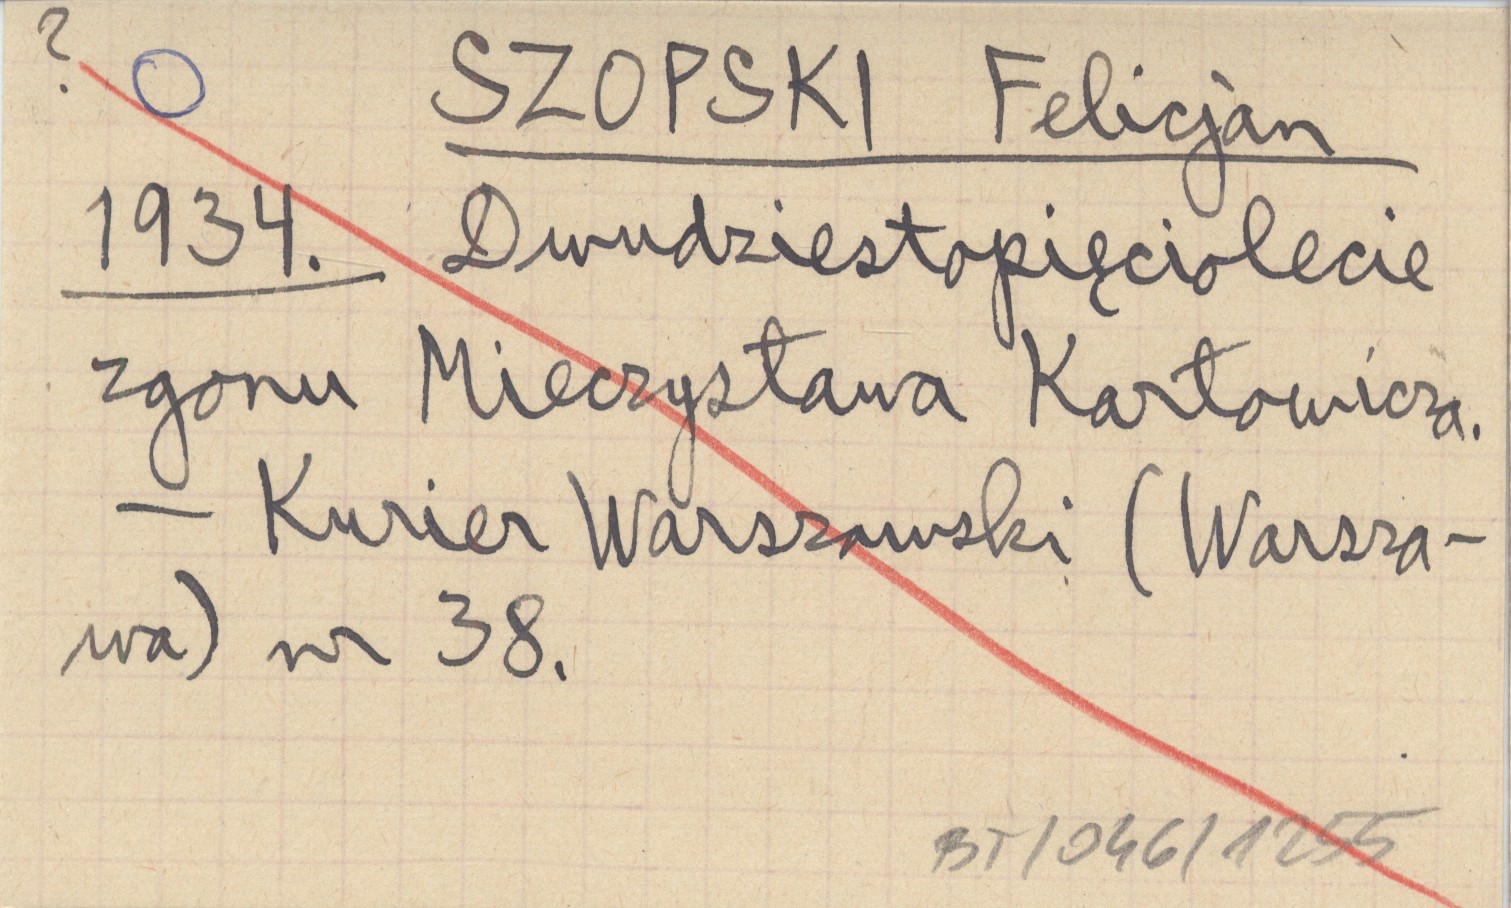 ?
SZOPSKI Felicjan
1934. Dwudziestopięciolecie
zgonu Mieczysława Karłowicza.
— Kurier Warszawski (Warsza-
wa) nr 38.
BT/046/1255